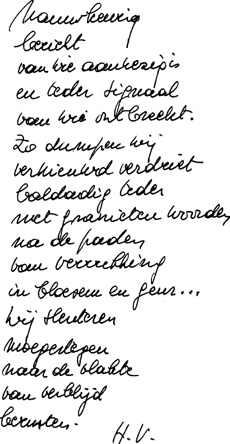 Nauwkeurig
bericht
van wie aanwezig is
en ieder signaal
van wie ontbreekt.
Zo dumpen wij
verkleumd verdriet
baldadig teder
met granieten woorden
na de paden
van verrukking
in bloesem en geur...
Wij slenteren
moegezegen
naar de vlakte
van verblijd
berusten.
H.V.